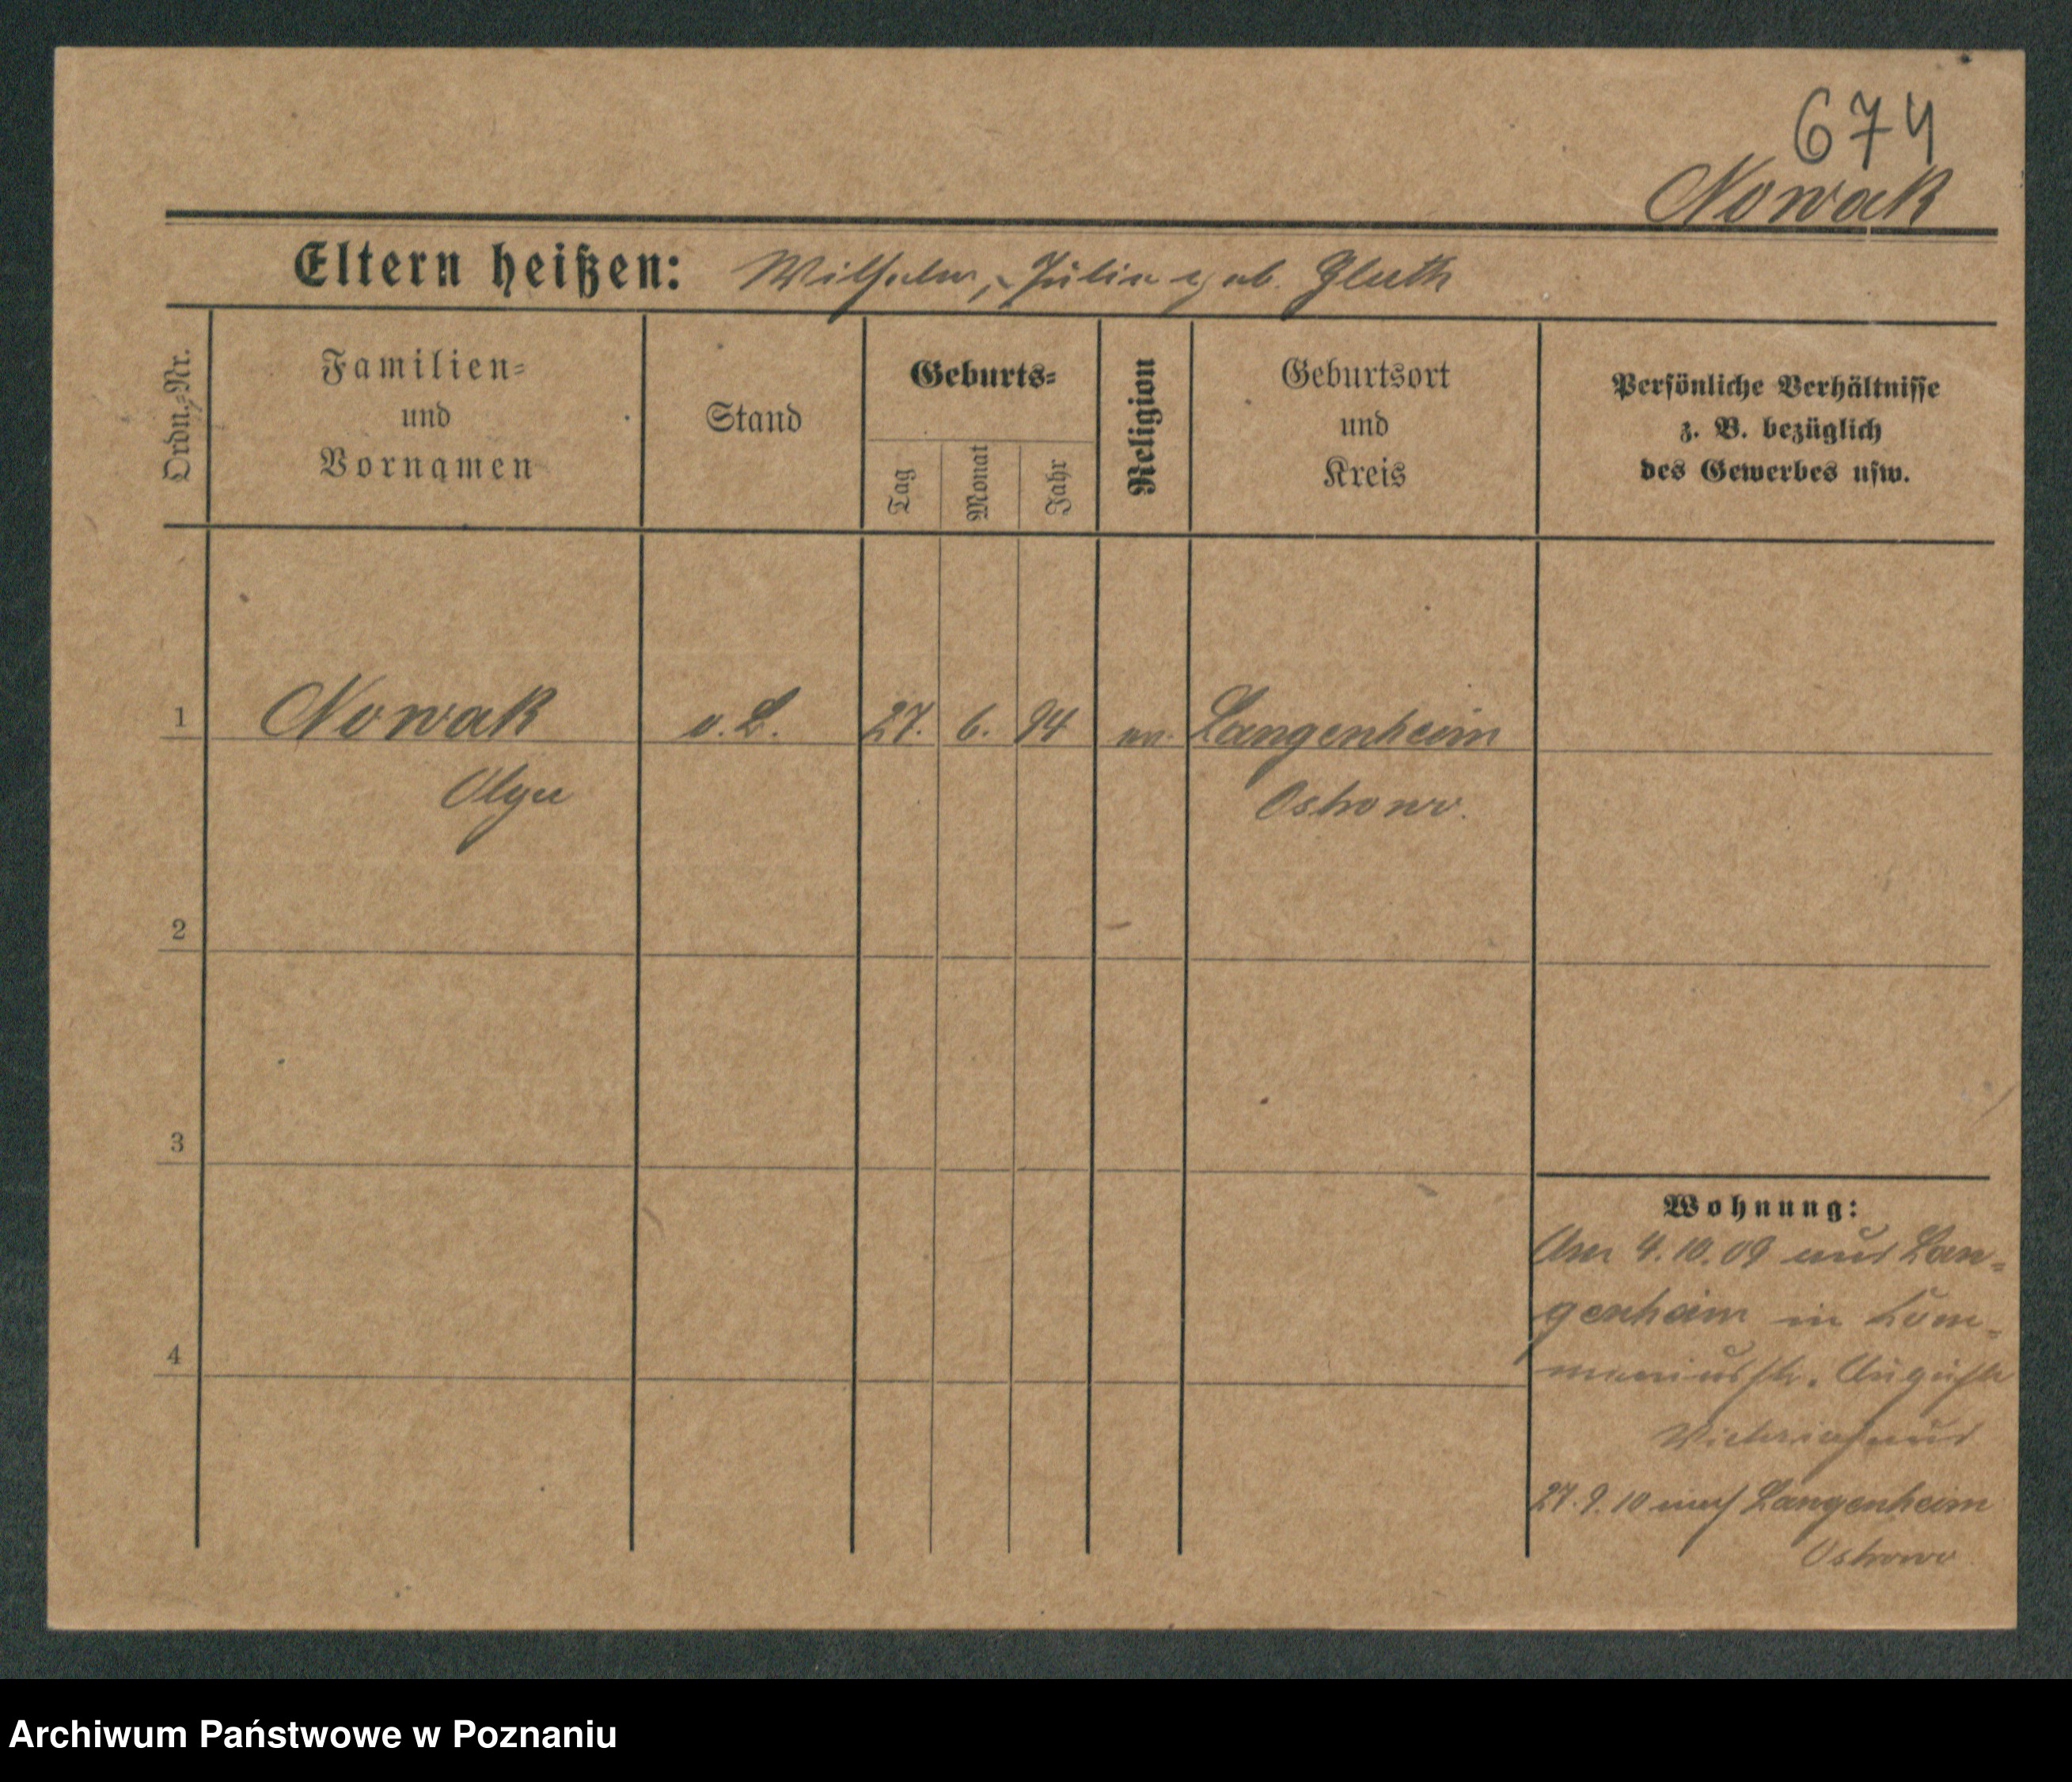 674
Nowak
Eltern heißen: Wilhelm, Julie geb. Gluth
Ordn.-Nr.
Familien-
und
Vornamen
Stand
Geburts-
Tag
Monat
Jahr
Religion
Geburtsort
und
Kreis
Persönliche Verhältnisse
z. B. bezüglich
des Gewerbes usw.
1 Nowak o. B. 27. 6. 94 ev. Langenheim
Olga Ostrowo.
2
3
4
Wohnung:
4.10.09 aus Lan-
genheim in Com-
meniusstr. Auguste
Victoriahaus
27.9.10 nach Langenheim
Ostrowo
Archiwum Państwowe w Poznaniu